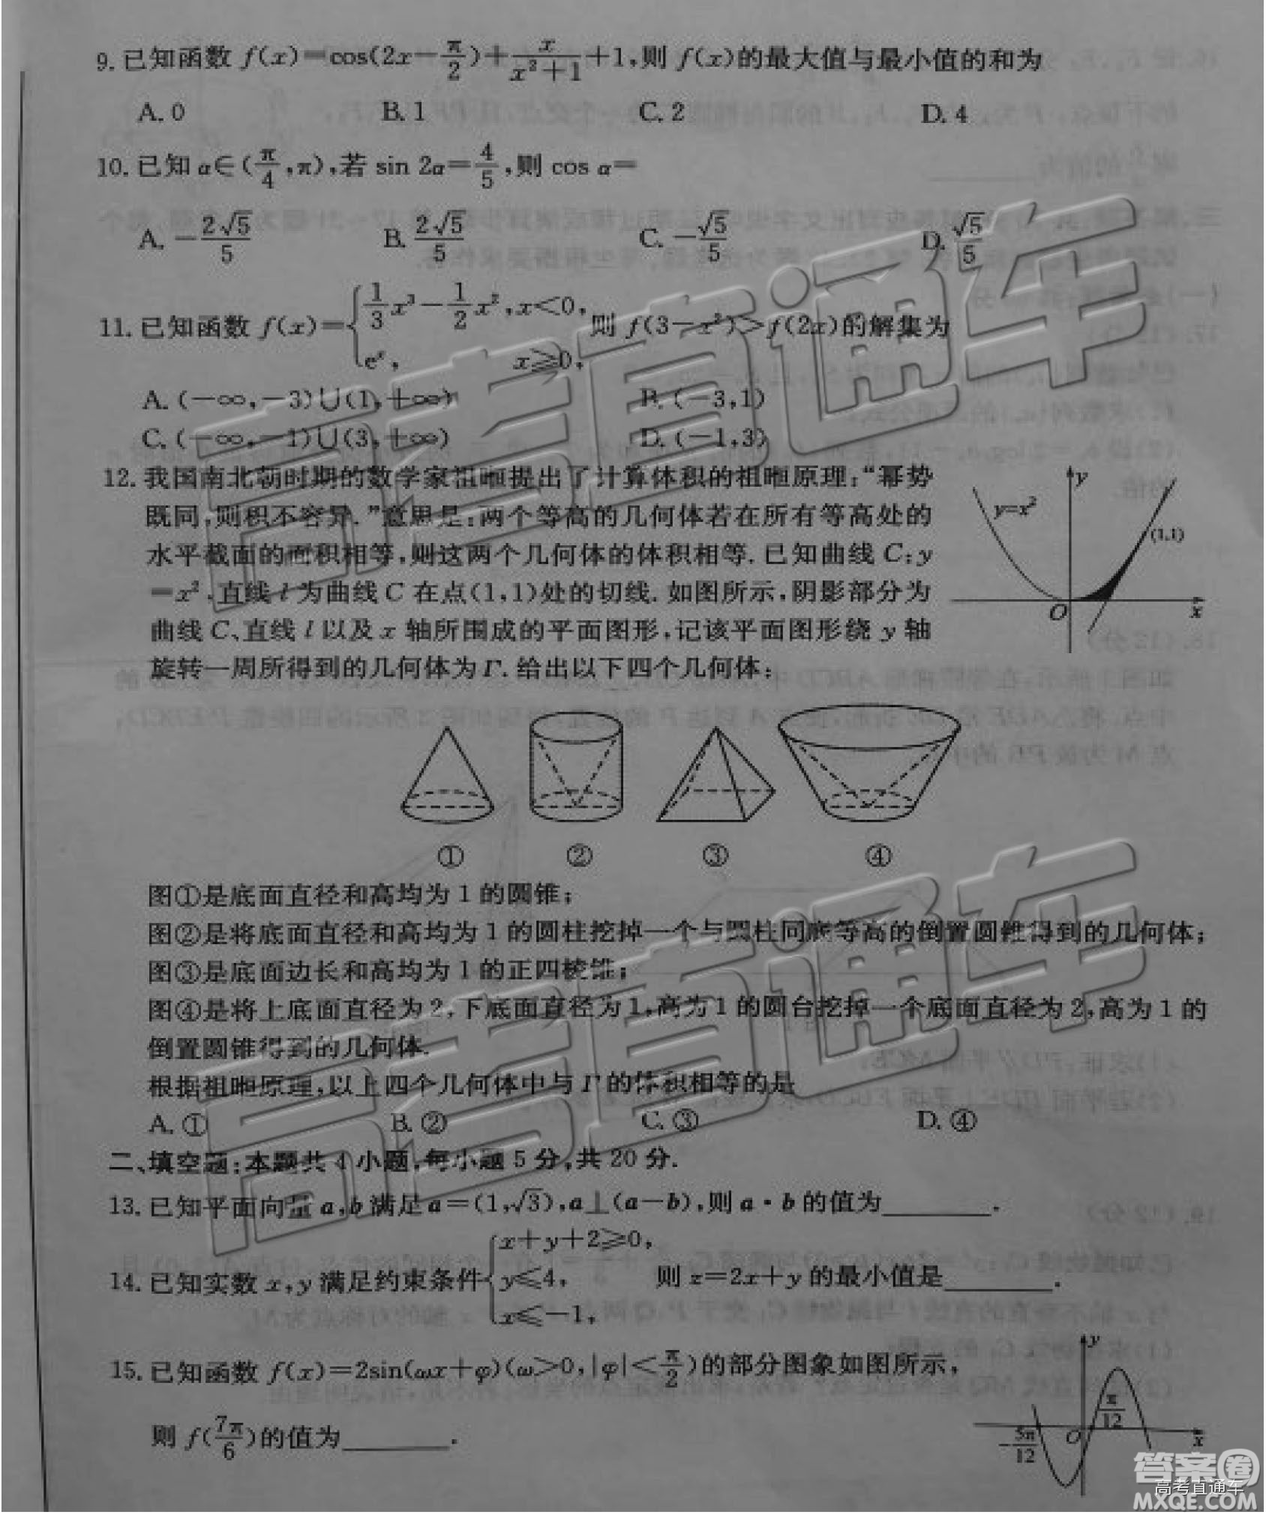 9. 已知函数 f(x)=cos(2x-π/2)+x/(x²+1)+1,则 f(x)的最大值与最小值的和为
A. 0 B. 1 C. 2 D. 4
10. 已知 α∈(π/4,π),若 sin 2α=4/5,则 cos α=
A. -2√5/5 B. 2√5/5 C. -√5/5 D. √5/5
11. 已知函数 f(x)={1/3x³-1/2x²,x<0, e^x, x≥0, 则 f(3-x²)>f(2x)的解集为
A. (-∞,-3)∪(1,+∞) B. (-3,1)
C. (-∞,-1)∪(3,+∞) D. (-1,3)
12. 我国南北朝时期的数学家祖暅提出了计算体积的祖暅原理:“幂势
既同,则积不容异.”意思是:两个等高的几何体若在所有等高处的
水平截面的面积相等,则这两个几何体的体积相等. 已知曲线 C:y
=x²,直线 l 为曲线 C 在点(1,1)处的切线. 如图所示,阴影部分为
曲线 C、直线 l 以及 x 轴所围成的平面图形,记该平面图形绕 y 轴
旋转一周所得到的几何体为 Γ. 给出以下四个几何体:
y
y=x²
(1,1)
O x
① ② ③ ④
图①是底面直径和高均为 1 的圆锥;
图②是将底面直径和高均为 1 的圆柱挖掉一个与圆柱同底等高的倒置圆锥得到的几何体;
图③是底面边长和高均为 1 的正四棱锥;
图④是将上底面直径为 2,下底面直径为 1,高为 1 的圆台挖掉一个底面直径为 2,高为 1 的
倒置圆锥得到的几何体.
根据祖暅原理,以上四个几何体中与 Γ 的体积相等的是
A. ① B. ② C. ③ D. ④
二、填空题:本题共 4 小题,每小题 5 分,共 20 分.
13. 已知平面向量 a,b 满足 a=(1,√3),a⊥(a-b),则 a·b 的值为________.
14. 已知实数 x,y 满足约束条件{x+y+2≥0, y≤4, x≤-1, 则 z=2x+y 的最小值是________.
15. 已知函数 f(x)=2sin(ωx+φ)(ω>0,|φ|<π/2)的部分图象如图所示,
则 f(7π/6)的值为________.
y
π/12
-5π/12
O x
高考直通车
高考直通车
答案圈
高考直通车
MXQE.COM